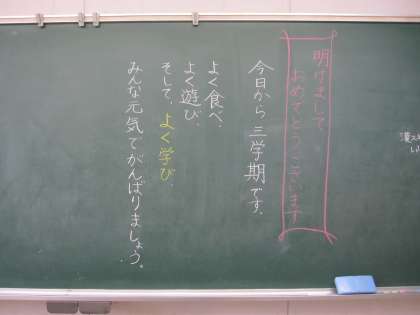 明けまして
おめでとうございます
今日から三学期です。
よく食べ、
よく遊び、
そして、よく学び、
みんな元気でがんばりましょう。